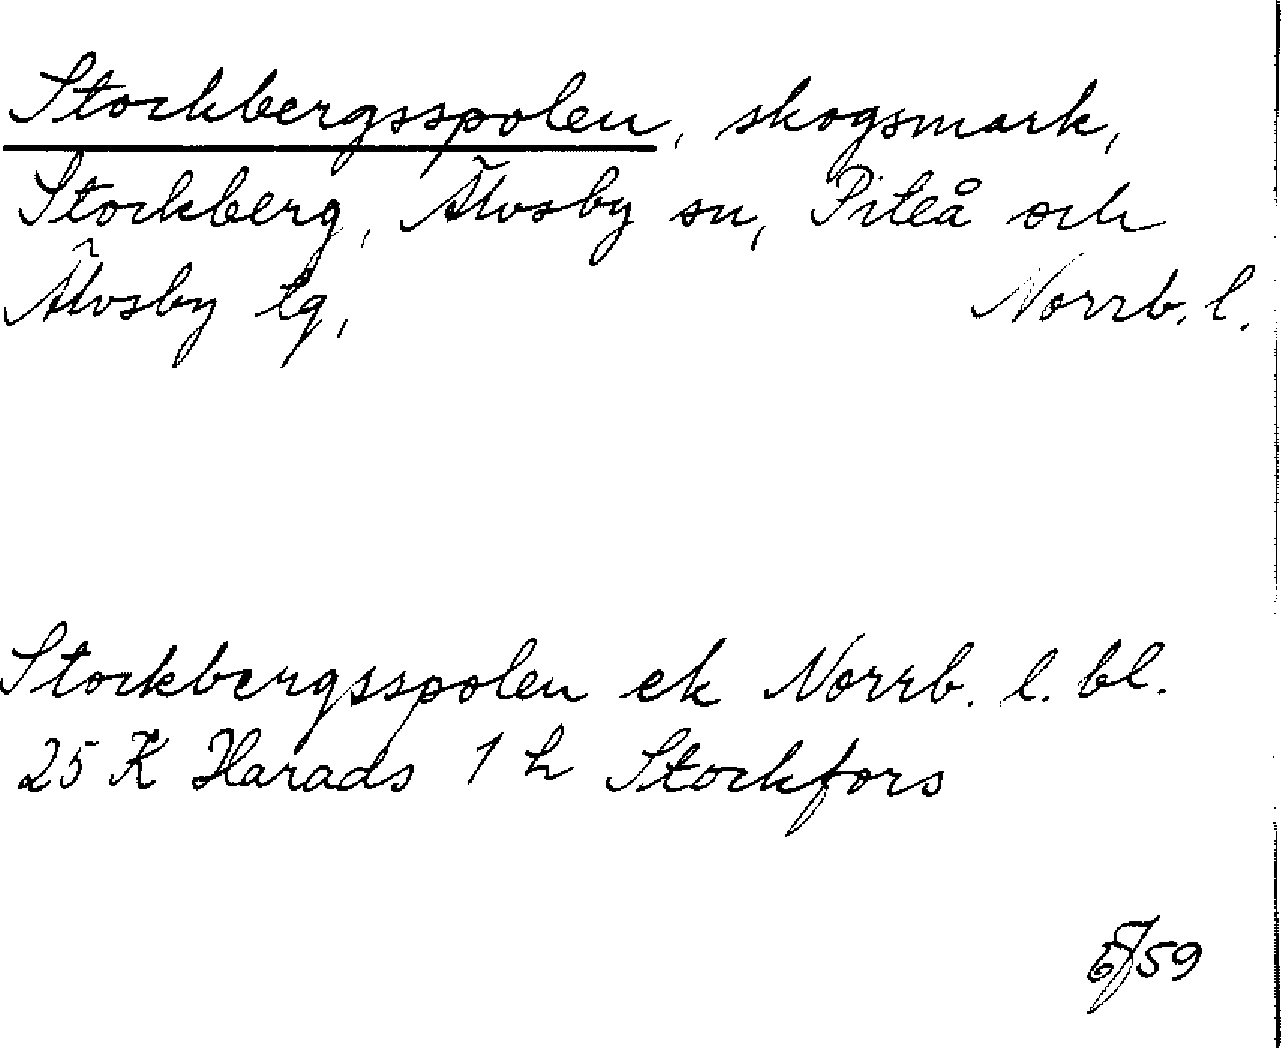 Stockbergsspolen, skogsmark,
Stockberg, Älvsby sn, Piteå och
Älvsby tg, Norrb. l.
Stockbergsspolen ek Norrb. l. bl.
25 K Harads 1 h Stockfors
59